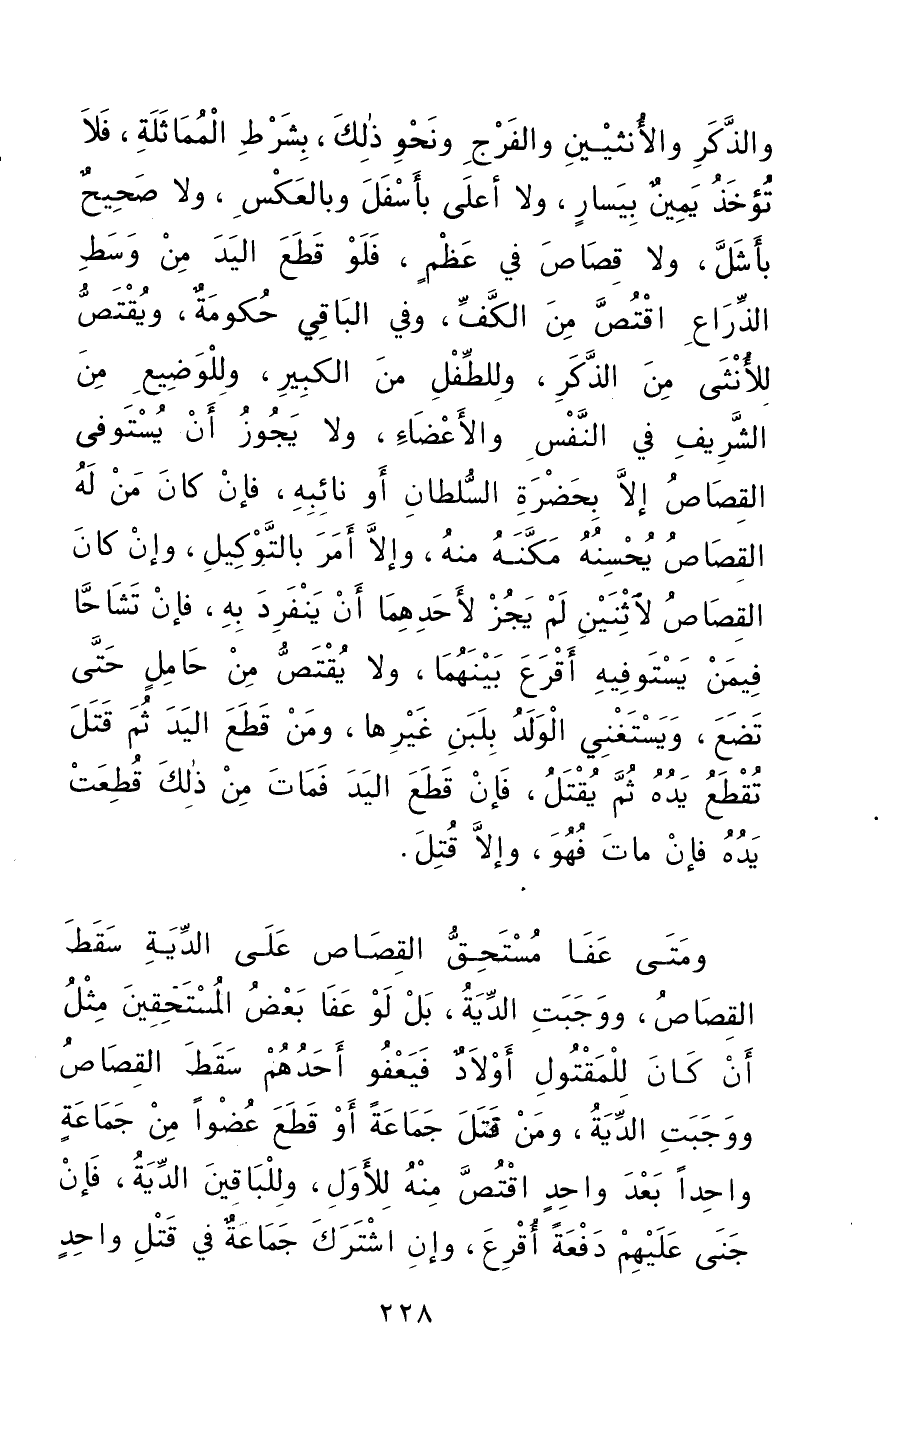 والذَّكَرِ والأُنثيْـينِ والفَرْجِ ونَحْوِ ذٰلِكَ ، بِشَرْطِ الْمُمَاثَلَةِ ، فَلاَ
تُؤخَذُ يَمِينٌ بِيَسارٍ ، ولا أعلَى بأَسْفَلَ وبالعَكْسِ ، ولا صَحِيحٌ
بأَشَلَّ ، ولا قِصَاصَ في عَظْمٍ ، فَلَوْ قَطَعَ اليَدَ مِنْ وَسَطِ
الذِّرَاعِ اقْتُصَّ مِنَ الكَّفِّ ، وفي البَاقِي حُكومَةٌ ، ويُقْتَصُّ
لِلأُنْثَى مِنَ الذَّكَرِ ، وللطِّفْلِ منَ الكبِيرِ ، وللْوَضِيعِ مِنَ
الشَّرِيفِ في النَّفْسِ والأَعْضَاءِ ، ولا يَجُوزُ أَنْ يُسْتَوفى
القِصَاصُ إلاَّ بِحَضْرَةِ السُّلطانِ أو نائِبِهِ ، فإنْ كانَ مَنْ لَهُ
القِصَاصُ يُحْسِنُهُ مَكَّنَـهُ منهُ ، وإلاَّ أَمَرَ بالتَّوْكِيلِ ، وإنْ كانَ
القِصَاصُ لآثْنَيْنِ لَمْ يَجُزْ لأَحَدِهِمَا أَنْ يَنْفَرِدَ بِهِ ، فإنْ تَشَاحَّا
فِيمَنْ يَسْتَوفِيهِ أَقْرَعَ بَيْنَهُمَا ، ولا يُقْتَصُّ مِنْ حَامِلٍ حَتَّى
تَضَعَ ، وَيَسْتَغْنِي الْوَلَدُ بِلَبَنِ غَيْرِها ، ومَنْ قَطَعَ اليَدَ ثُمَ قَتَلَ
تُقْطَعُ يَدُهُ ثُمَّ يُقْتَلُ ، فَإنْ قَطَعَ اليَدَ فَمَاتَ مِنْ ذٰلِكَ قُطِعَتْ
يَدُهُ فإنْ ماتَ فَهُوَ ، وإلاَّ قُتِلَ .
ومَتَـى عَفَـا مُسْتَحِـقُّ القِصَـاصِ عَلَـى الدِّيَـةِ سَقَـطَ
القِصَاصُ ، ووَجَبَتِ الدِّيَةُ ، بَلْ لَوْ عَفَا بَعْضُ الْمُسْتَحِقِينَ مِثْلُ
أَنْ كَـانَ لِلْمَقْتُولِ أَوْلَادٌ فَيَعْفُو أَحَدُهُمْ سَقَطَ القِصَاصُ
ووَجَبَتِ الدِّيَةُ ، ومَنْ قَتَلَ جَمَاعَةً أَوْ قَطَعَ عُضْواً مِنْ جَمَاعَةٍ
واحِداً بَعْدَ واحِدٍ اقْتُصَّ مِنْهُ للأَوَلِ ، وللْبَاقِينَ الدِّيَةُ ، فَإنْ
جَنَى عَلَيْهِمْ دَفْعَةً أُقْرِعَ ، وإنِ اشْتَرَكَ جَمَاعَةٌ في قَتْلِ واحِدٍ
٢٢٨